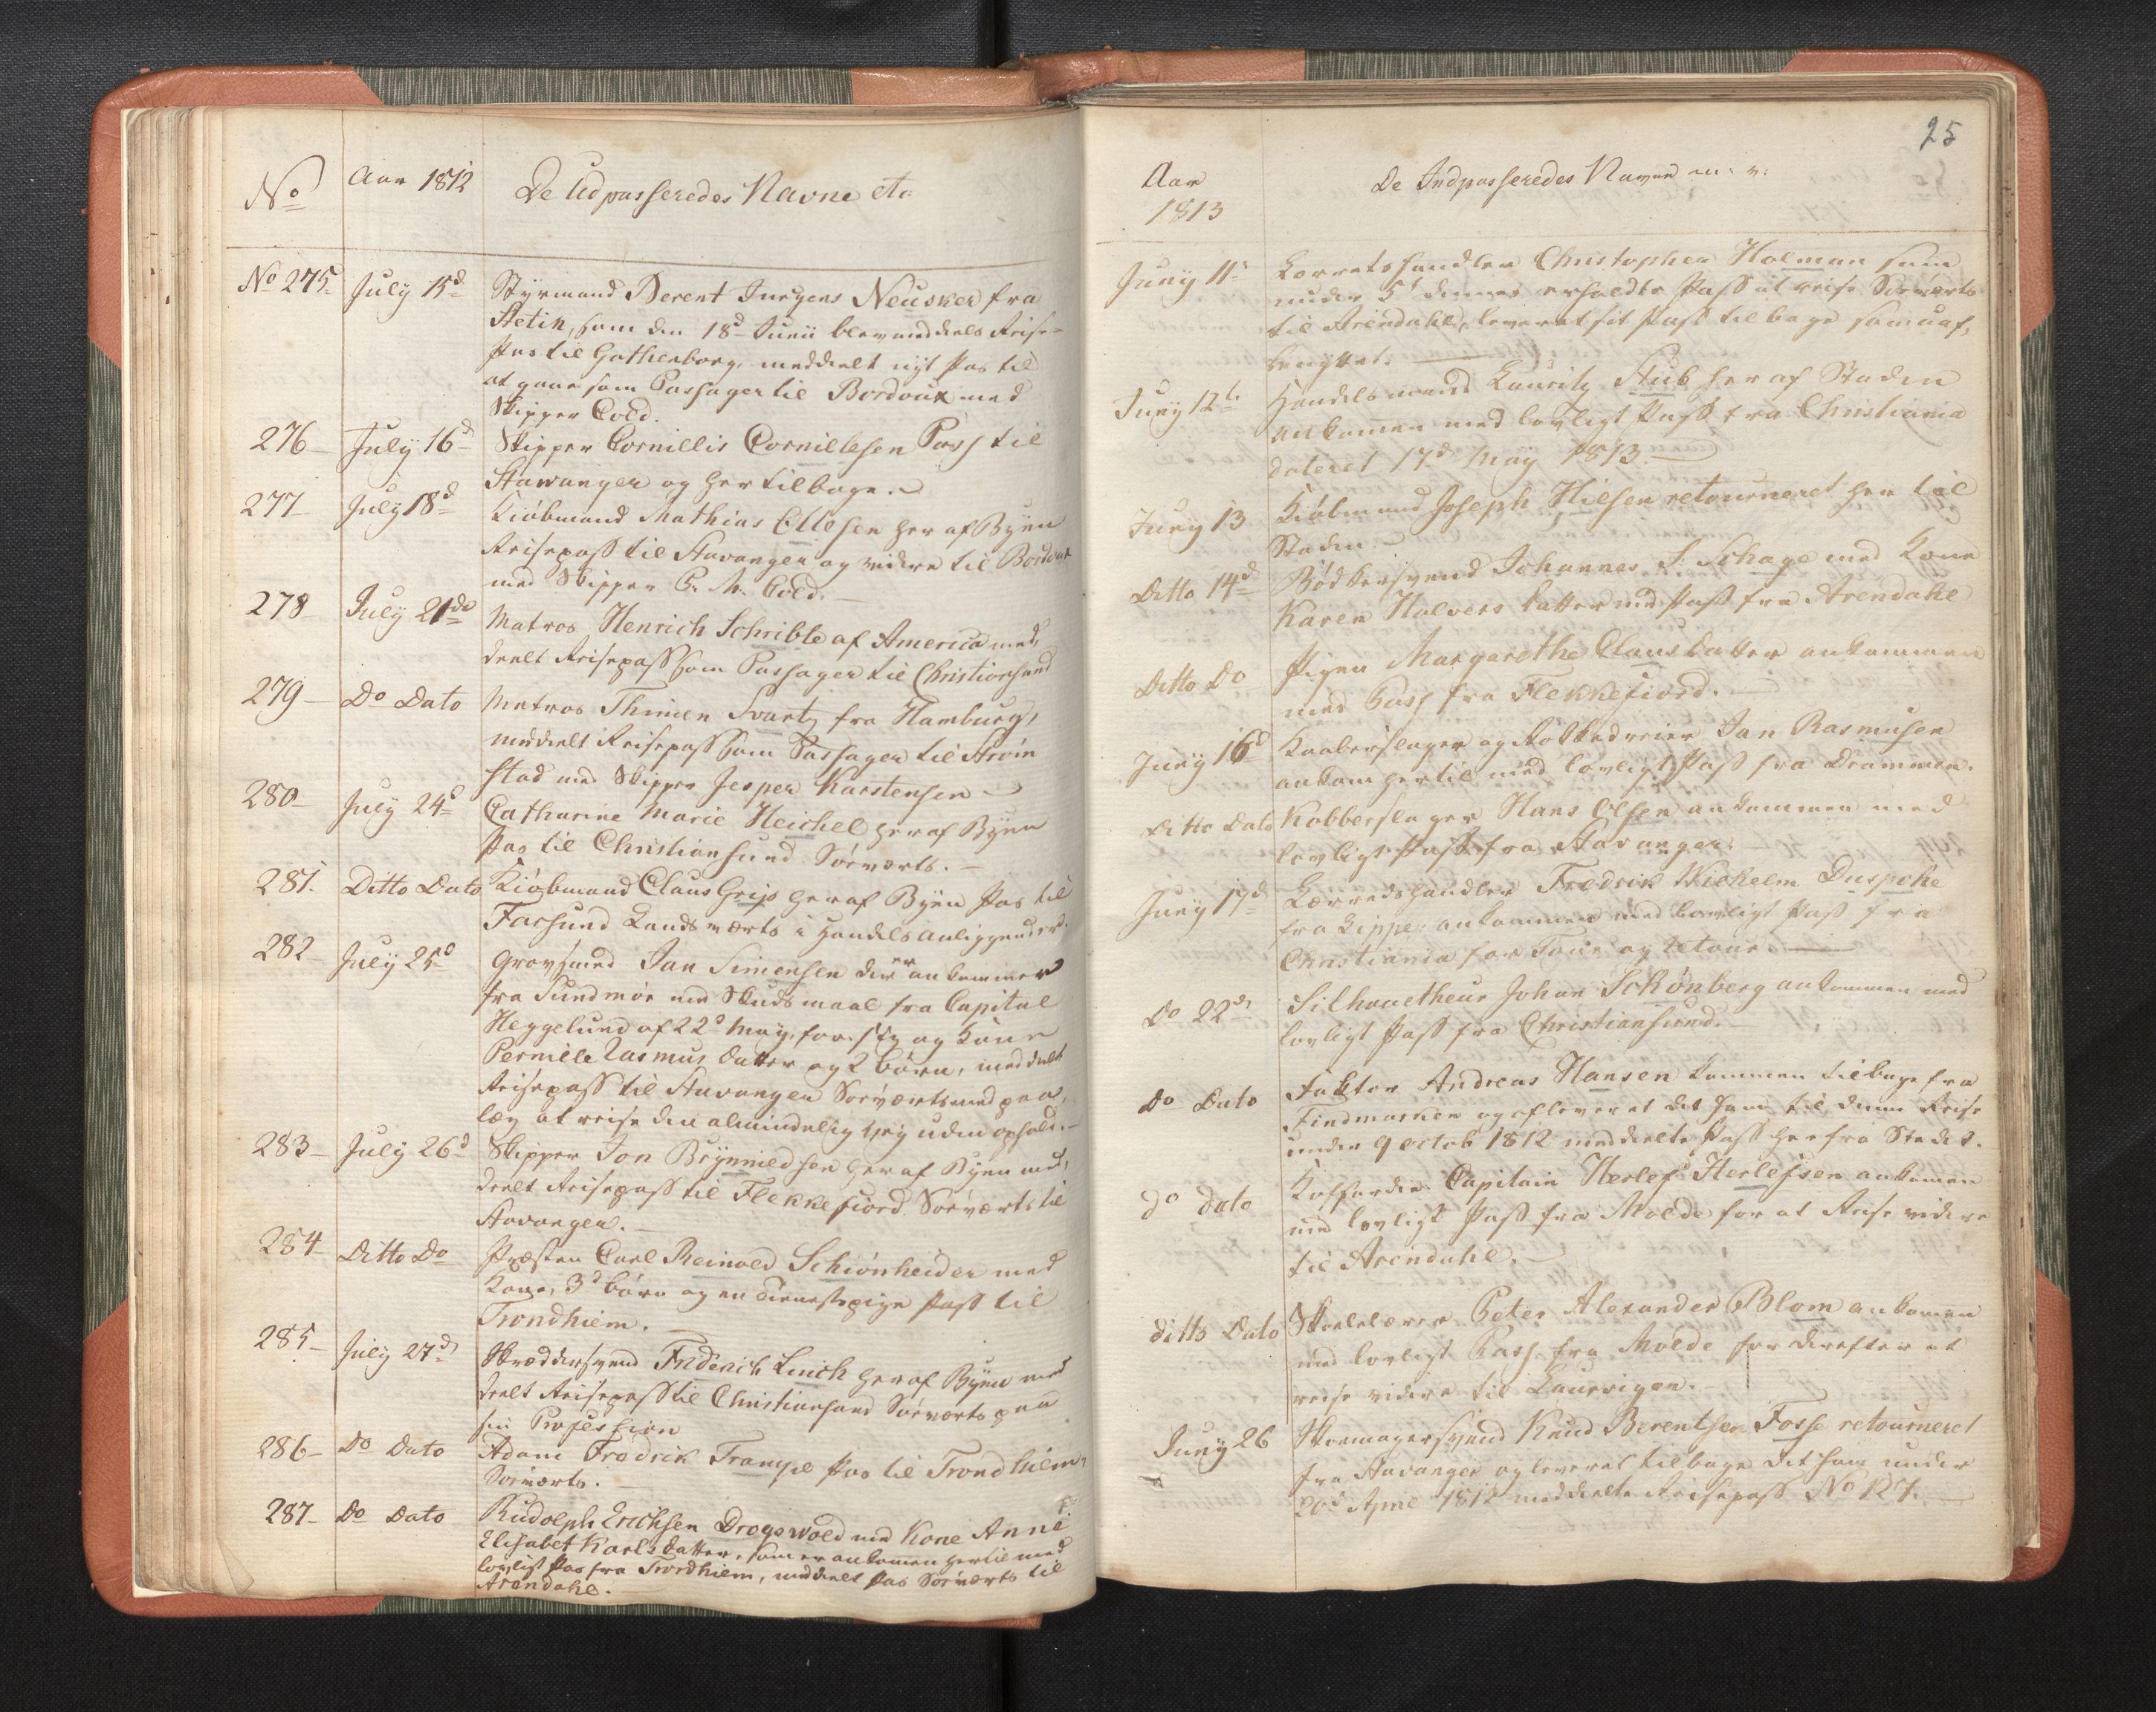 No
Aar 1812
De Udpasseredes Navne etc
No 275
July 15d
Styrmand Berent Jurgens Neusker fra
Stetin, som den 18d Junii blev meddeels Reise-
Pas til Gothenborg, meddelt nyt Pas til
at gaae som Passager til Bordoux med
Skipper Cold.
276
July 16d
Skipper Cornillis Cornillesen Pass til
Stawanger og her tilbage.
277
July 18d
Kiöbmand Mathias Ellesen her af Byen
Reisepass til Stavanger og videre til Bordoux
med Skipper C. M. Cold.
278
July 21de
Matros Henrich Schrible af America med,
deelt Reisepass som Passager til Christiansand
279
Do Dato
Matros Thimen Svartz fra Hamburg,
meddelt Reisepass som Passager til Ström
stad med Skipper Jesper Karstensen
280
July 24d
Catharine Marie Heichel her af Byen
Pas til Christiansund Sörværts.
281.
Ditto Dato
Kiöbmand Claus Grip her af Byen Pas til
Farsund Landværts i Handels anliggender.
282
July 25d
Grovsmed Jan Simensen der er ankommer
fra Sundmör med Skudsmaal fra Capital
Heggelund af 22d May, for sig og Kone
Pernille Rasmus datter og 2 börn, meddelt
Reisepass til Stavanger Sörværts med paa,
læg at reise den almindelig Vey uden ophold.
283
July 26d
Skipper Jon Brynnildsen her af Byen med,
deelt Reisepass til Flekkefiord Sörværts til
Stavanger.
284
Ditto Do
Præsten Carl Reinold Schiönheider med
Kone, 3d börn og en Tienestepige Pass til
Trondhiem.
285
July 27d
Skreddersvend Friderich Luich her af Byen med
deelt Reisepass til Christiansand Sörværts paa
sin Profession
286
Do Dato
Adam Fredrik Trampe Pas til Trondhiem,
Sörværts.
287
Do Dato
Rudolph Erichsen Drogswold med Kone Anne
Elisabet Karls datter, som er ankommen hertil med
lovligt Pas fra Trondhiem, meddelt Pas Sörværts til
Arendahl.
25
Aar
1813
De Indpasseredes Navne m: v:
Juny 11
Korretshandler Christopher Holman som
under 5t dennes erholdte Pass at reise Sörværts
til Arendahl, leveret sit Pass tilbage som uaf,
benyttet.
Juny 12te
Handelsmand Lauritz Stub her af Staden
ankommen med lovligt Pass fra Christiania
dateret 17d May 1813
Juny 13
Kiöbmand Joseph Nielsen retourneret her til
Staden
Ditto 14d
Bödkersvend Johannes J. Schage med Kone
Karen Halvers datter med Pass fra Arendahl
Ditto Do
Pigen Margarethe Claus datter ankommen
med Pass fra Flekkefiord.
Juny 16d
Kaaberslager og Rokkedreier Jan Rasmusen
ankom hertil med lovligt Pass fra Drammen.
Ditto Dato
Kobberslager Hans Olsen ankommen med
lovligt Pass fra Stavanger.
Juny 17d
Lærredshandler Fredrik Wilhelm Duspohe
fra Lippe ankommen med lovligt Pass fra
Christiania for Tour og Retour
Do 22de
Silhouetheur Johan Schönberg ankommen med
lovligt Pass fra Christiansund.
Do Dato
Faktor Andreas Hansen kommen tilbage fra
Findmarken og afleveret det ham til denne Reise
under 9 octob 1812 meddelte Pass her fra Stedet.
do dato
Koffardie Capitain Herlef Herlefsen ankommen
med lovligt Pass fra Molde for at Reise videre
til Arendahl.
ditto Dato
Skolelærer Peter Alexander Blom ankommen
med lovligt Pass fra Molde for derefter at
reise videre til Laurvigen.
Juny 26
Skomagersvend Knud Berentsen Fosse retourneret
fra Stavanger og leveret tilbage det ham under
20d April 1812 meddelte Reisepass No 127.